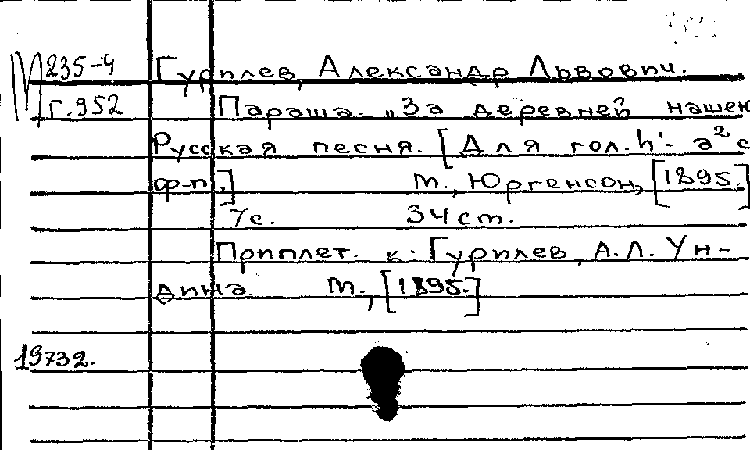 М 235-4 Гурилев, Александр Львович.
Г.952 Параша. „За деревней нашей
Русская песня. [Для гол. h'- a² с
ф-п.] М., Юргенсон, [1895.]
7с. 34 ст.
Приплет. к: Гурилев, А.Л. Ун-
дина. М., [1895.]
19732.